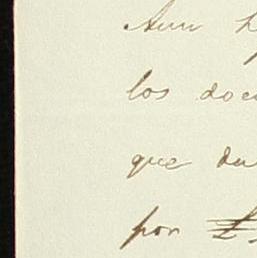 Aun
los doc
que du
por